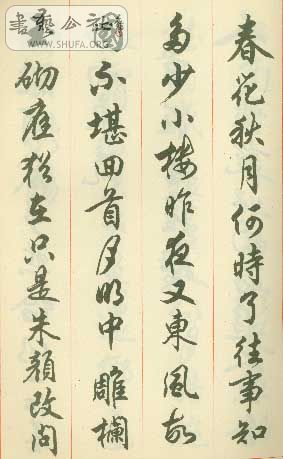 書藝公社
WWW.SHUFA.ORG
春花秋月何時了往事知
多少小樓昨夜又東風故
國不堪回首月明中雕欄
砌應猶在只是朱顏改問